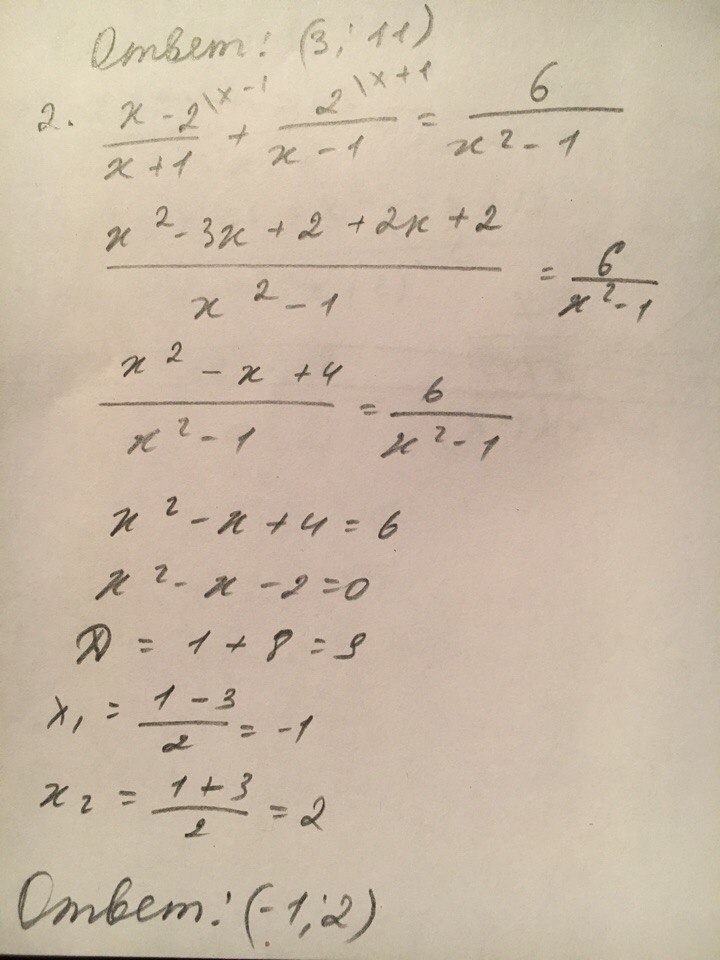 Ответ: (3; 11)
2. x-2\x-1 / x+1 + 2\x+1 / x-1 = 6 / x²-1
x²-3x+2+2x+2 / x²-1 = 6 / x²-1
x²-x+4 / x²-1 = 6 / x²-1
x²-x+4=6
x²-x-2=0
D=1+8=9
x₁ = 1-3 / 2 = -1
x₂ = 1+3 / 2 = 2
Ответ: (-1; 2)